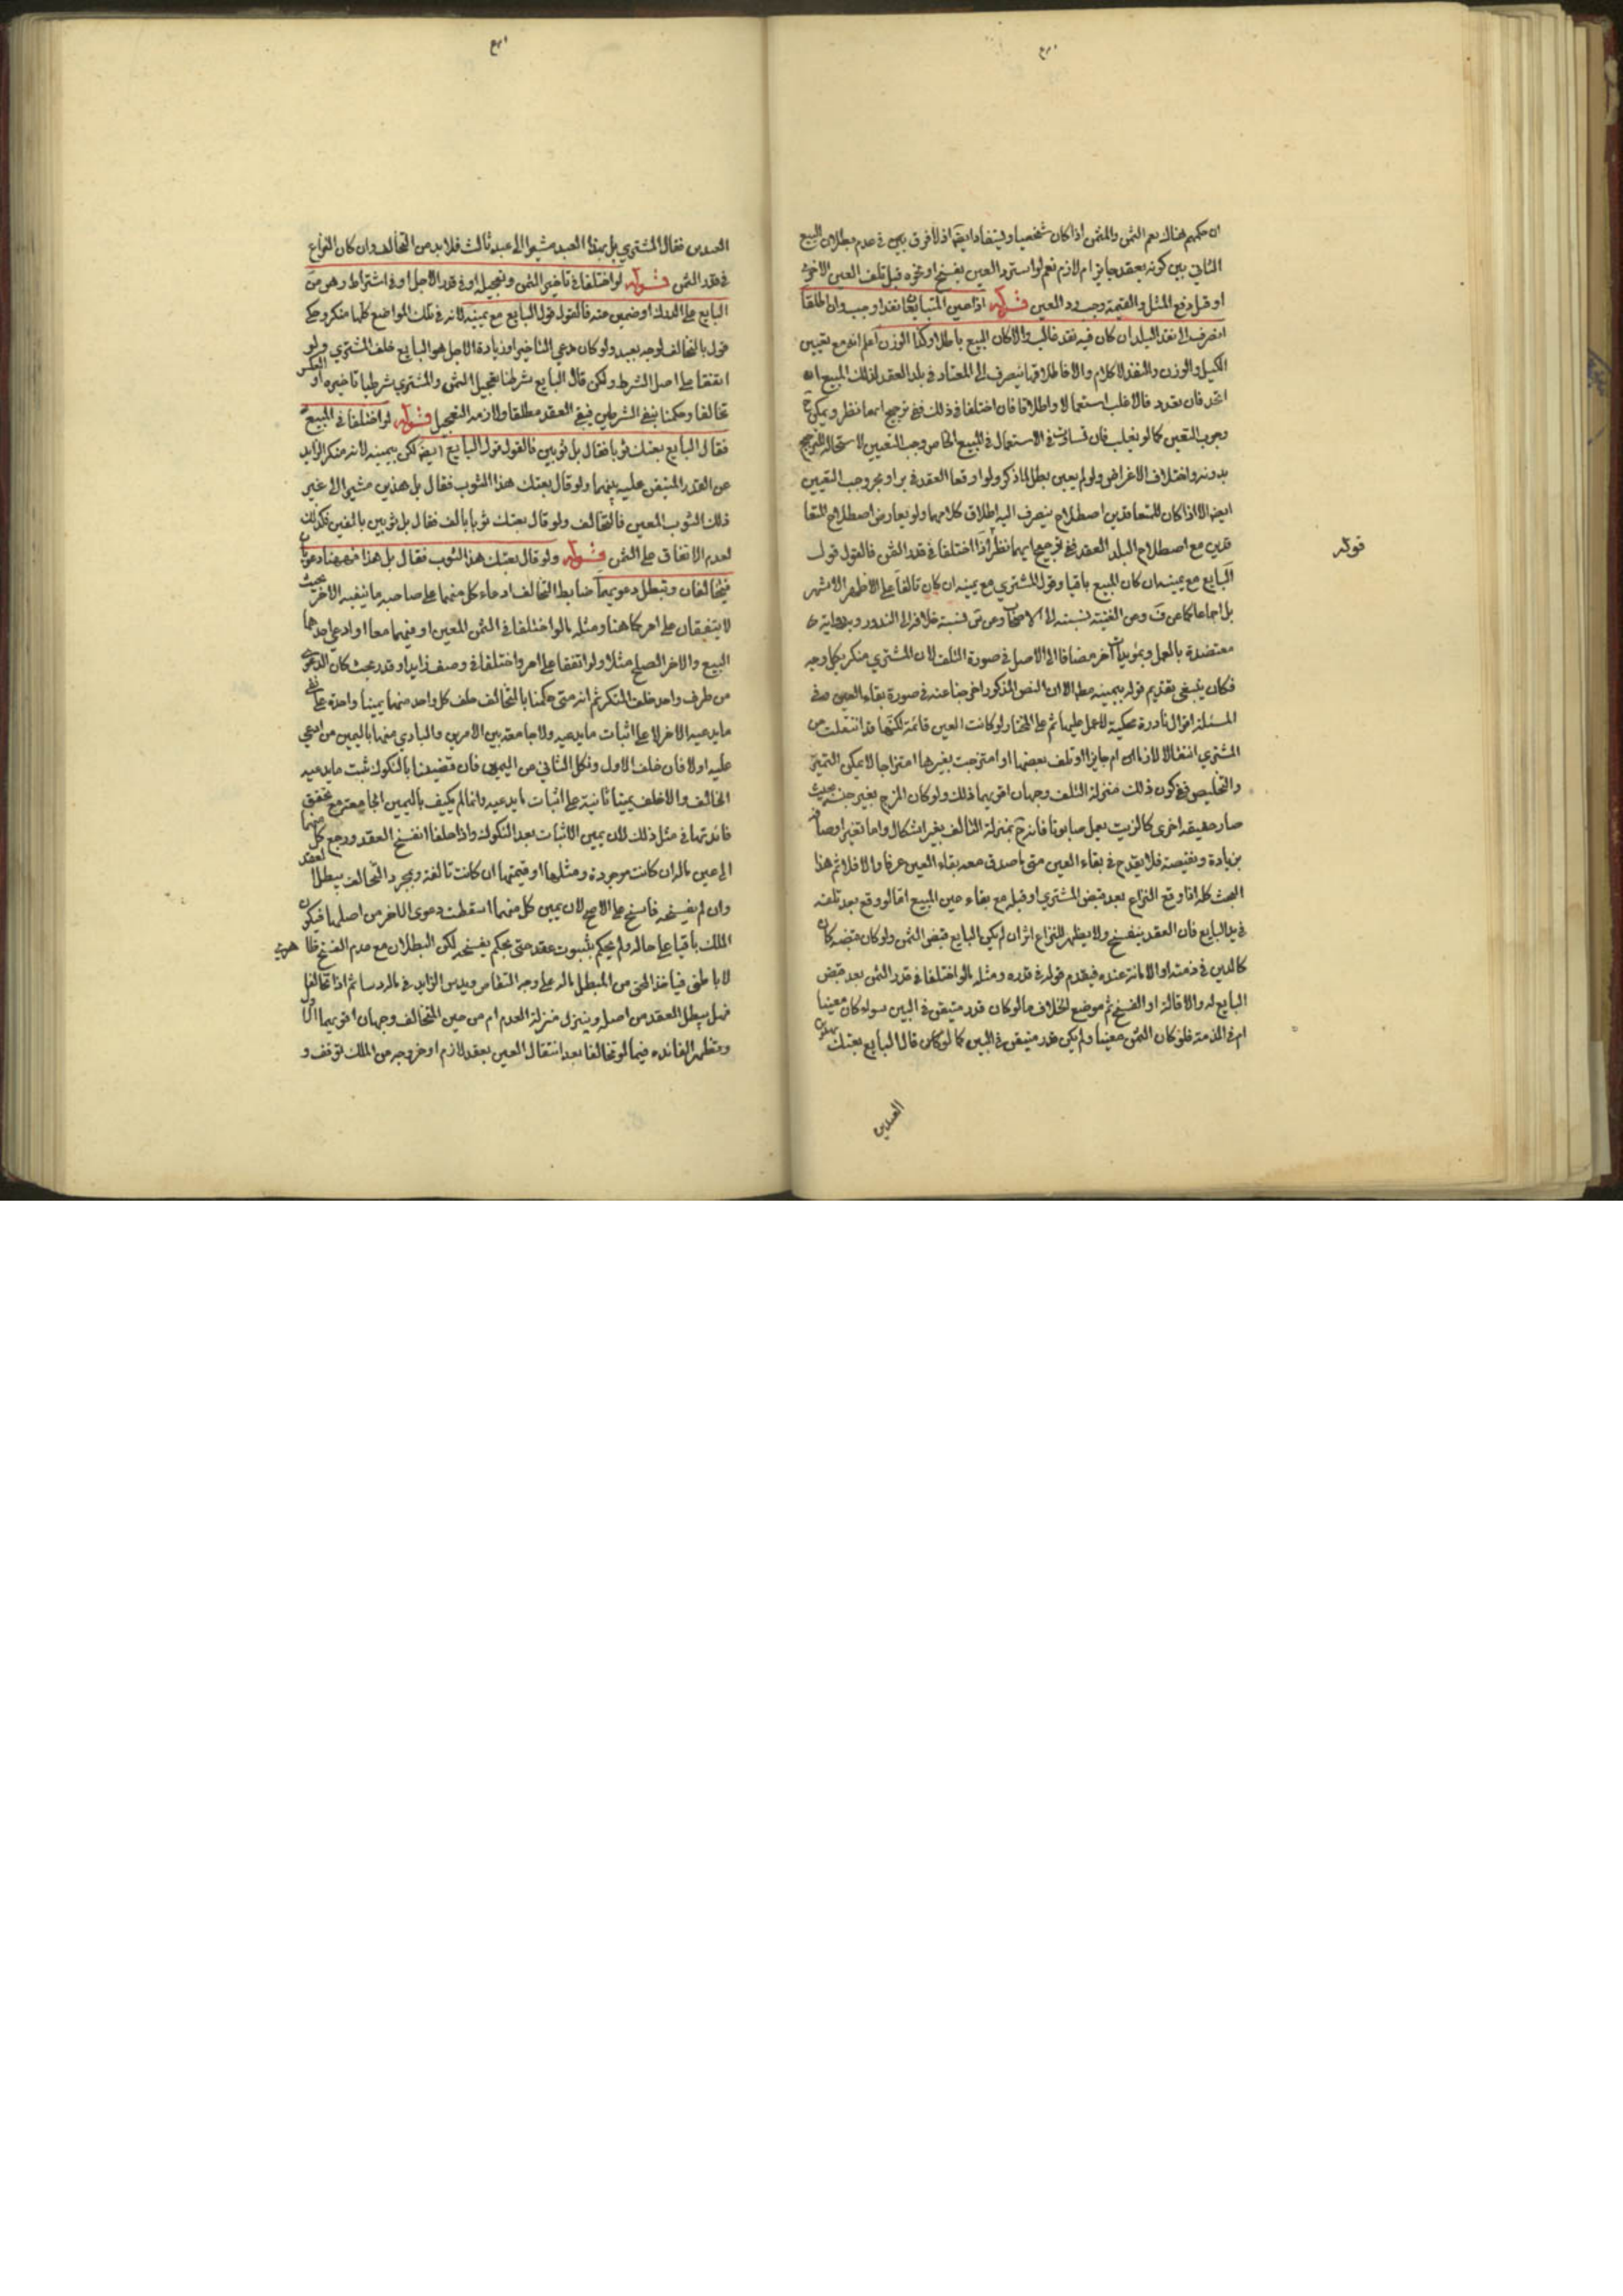 ان حكمهم هناك يعم الثمن والمثمن اذا كان شخصيا وليتفاد ايضا اذ لا فرق بين في عدم بطلان البيع
الثاني بين كونه بعقد جايز ام لازم نعم لو استرد العين بفسخ او نحوه قبل تلف العين الاخرى
او قبل دفع المثل والقيمة وجب رد العين قوله اذا عين المتبايعان نقدا وجب وان اطلقا
انصرف الى نقد البلد ان كان فيه نقد غالب والا كان البيع باطلا وكذا الوزن اعلم انه مع تعيين
الكيل والوزن والنقد لا كلام والا فاطلاقها ينصرف الى المعتاد في بلد العقد لذلك المبيع ان
اتحد فان تعدد فالاغلب استعمالا واطلاقا فان اختلفا في ذلك ففي ترجيح ايهما نظر ويمكن ح
وجوب التعيين كما لو يغلب فان تساوت في الاستعمال في المبيع الخاص وجب التعيين لاستحالة الترجيح
بدونه واختلاف الاغراض ولو لم يعين بطل لما ذكر ولو اوقعا العقد في بر او بحر وجب التعيين
ايضا الا اذا كان للمتعاقدين اصطلاح ينصرف اليه اطلاق كلامهما ولو تعارض اصطلاح المتعا
قدين مع اصطلاح البلد العقد ففي ترجيح ايهما نظر اذا اختلفا في قدر الثمن فالقول قول
قوله
البايع مع يمينه ان كان المبيع باقيا وقول المشتري مع يمينه ان كان تالفا على الاظهر الاشهر
بل اجماعا كما عن ف وعن الغنية نسبته الى الاصحاب وعن س نسبة خلافه الى الندور وبه رواية
معتضدة بالعمل وبمؤيدات آخر مضافا الى الاصل في صورة التلف لان المشتري منكر بكل وجه
فكان ينبغي تقديم قوله بيمينه مطلقا الا ان النص المذكور اخرجنا عنه في صورة بقاء العين وفي
المسئلة اقوال نادرة محكية للعمل عليها ثم على المختار لو كانت العين قائمة لكنها قد انتقلت من
المشتري انتقالا لازما ام جايزا او تلف بعضها او امتزجت بغيرها امتزاجا لا يمكن التمييز
والتخليص ففي كون ذلك منزلة التلف وجهان اقربهما ذلك ولو كان المزج بغير جنسه بحيث
صار حقيقة اخرى كالزيت يعمل صابونا فانه ح بمنزلة التالف بغير اشكال واما تغير اوصافه
بزيادة ونقيصة فلا يقدح في بقاء العين متى ما صدق معه بقاء العين عرفا والا فلا ثم هذا
البحث كله اذا وقع النزاع بعد قبض المشتري او قبله مع بقاء عين المبيع اما لو وقع بعد تلفه
في يد البايع فان العقد ينفسخ ولا يظهر للنزاع اثر ان لم يكن البايع قبض الثمن ولو كان قبضه كان
كالدين في ذمته او الامانة عنده فيقدم قوله في قدره ومثله ما لو اختلفا في قدر الثمن بعد قبض
البايع له والاقالة او الفسخ ثم موضع الخلاف ما لو كان قدر متيقن في البين سواء كان معينا
ام في الذمة فلو كان الثمن معينا ولم يكن قدر متيقن في البين كما لو كان قال البايع بعتك بهذين
العبدين
العبدين فقال المشتري بل بهذا العبد مشيرا الى عبد ثالث فلا بد من التحالف وان كان النزاع
في قدر الثمن قوله لو اختلفا في تاخير الثمن وتعجيله او في قدر الاجل او في اشتراط رهن من
البايع على الدرك او ضمين عنه فالقول قول البايع مع يمينه لانه في تلك المواضع كلها منكر وحكي
قول بالتحالف لوجه بعيد ولو كان مدعي التاخير او زيادة الاجل هو البايع حلف المشتري ولو
اتفقا على اصل الشرط ولكن قال البايع شرطنا تعجيل الثمن والمشتري شرطنا تاخيره او العكس
تحالفا وحكمنا بنفي الشرطين فيبقى العقد مطلقا ولازمه التعجيل قوله لو اختلفا في المبيع
فقال البايع بعتك ثوبا فقال بل ثوبين فالقول قول البايع ايضا لكن بيمينه لانه منكر الزايد
عن القدر المتيقن عليه بينهما ولو قال بعتك هذا الثوب فقال بل هذين مشيرا الى غير
ذلك الثوب المعين فالتحالف ولو قال بعتك ثوبا بالف فقال بل ثوبين بالفين فكذلك
لعدم الاتفاق على الثمن قوله ولو قال بعتك هذا الثوب فقال بل هذا فههنا دعويان
فيتحالفان وتبطل دعويهما ضابط التحالف ادعاء كل منهما على صاحبه ما ينفيه الاخر بحيث
لا يتفقان على امر كما هنا ومثله ما لو اختلفا في الثمن المعين او فيهما معا او ادعى احدهما
البيع والاخر الصلح مثلا ولو اتفقا على امر واختلفا في وصف زايد او قدر بحيث كان الدعوى
من طرف واحد حلف المنكر ثم انه متى حكمنا بالتحالف حلف كل واحد منهما يمينا واحدة على نفي
ما يدعيه الاخر لا على اثبات ما يدعيه ولا جامعة بين الامرين والبادي منهما باليمين من ادعي
عليه اولا فان حلف الاول ونكل الثاني عن اليمين فان قضينا بالنكول ثبت ما يدعيه
الحالف والا حلف يمينا ثانية على اثبات ما يدعيه وانما لم يكتف باليمين الجامعة مع تحقق
فائدتها في مثل ذلك لان يمين الاثبات بعد النكول واذا حلفا انفسخ العقد ورجع كل منهما
الى عين ماله ان كانت موجودة ومثلها او قيمتها ان كانت تالفة وبمجرد التحالف يبطل العقد
وان لم يفسخه فاسخ على الاصح لان يمين كل منهما اسقطت دعوى الاخر من اصلها فيكون
الملك باقيا على حاله ولم يحكم بثبوت عقد حتى يحكم بفسخه لكن البطلان مع عدم الفسخ ظاهري
لا باطني فياخذ المحق من المبطل ماله على وجه التقاص ويدس الزايد في ماله دسا ثم اذا تحالفا
فهل يبطل العقد من اصله وينزل منزلة العدم ام من حين التحالف وجهان اقربهما الاول
وتظهر الفائدة فيما لو تحالفا بعد انتقال العين بعقد لازم او خروجه من الملك لوقف و